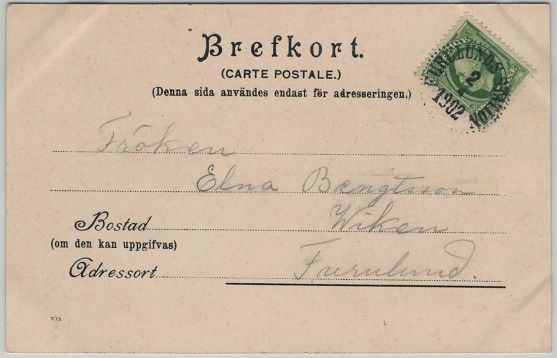 Brefkort.
(CARTE POSTALE.)
(Denna sida användes endast för adresseringen.)
2
1902
Fröken
Elna Bengtsson
Bostad
Wiken
(om den kan uppgifvas)
Adressort
Furulund.